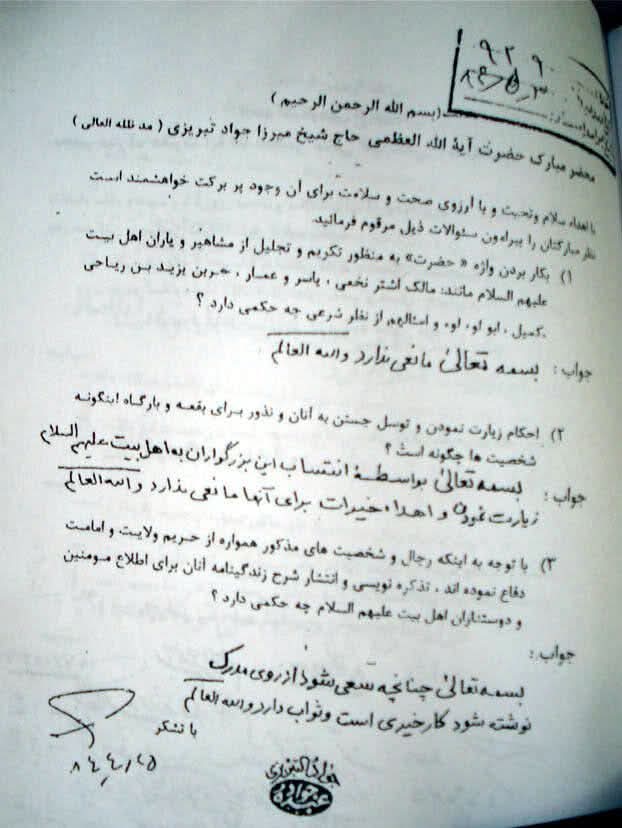 ۹۲۹۰
(بسم الله الرحمن الرحیم)
محضر مبارک حضرت آیة الله العظمی حاج شیخ میرزا جواد تبریزی (مد ظله العالی)
با اهداء سلام وتحیت و با آرزوی صحت و سلامت برای آن وجود پر برکت خواهشمند است
نظر مبارکتان را پیرامون سئوالات ذیل مرقوم فرمائید
۱) بکار بردن واژه «حضرت» به منظور تکریم و تجلیل از مشاهیر و یاران اهل بیت
علیهم السلام مانند: مالک اشتر نخعی ، یاسر و عمار ، حر بن یزید بن ریاحی
، کمیل ، ابو لولو، و امثالهم از نظر شرعی چه حکمی دارد ؟
جواب : بسمه تعالیٰ مانعی ندارد والله العالم
۲) احکام زیارت نمودن و توسل جستن به آنان و نذور برای بقعه و بارگاه اینگونه
شخصیت ها چگونه است ؟
جواب : بسمه تعالیٰ بواسطهٔ انتساب این بزرگواران به اهل بیت علیهم السلام
زیارت نمودن و اهداء خیرات برای آنها مانعی ندارد والله العالم
۳) با توجه به اینکه رجال و شخصیت های مذکور همواره از حریم ولایت و امامت
دفاع نموده اند ، تذکره نویسی و انتشار شرح زندگینامه آنان برای اطلاع مومنین
و دوستداران اهل بیت علیهم السلام چه حکمی دارد ؟
جواب :
بسمه تعالیٰ چنانچه سعی شود از روی مدرک
نوشته شود کار خیری است و ثواب دارد والله العالم
با تشکر
۸۴,۴,۲۵
جواد التبریزی